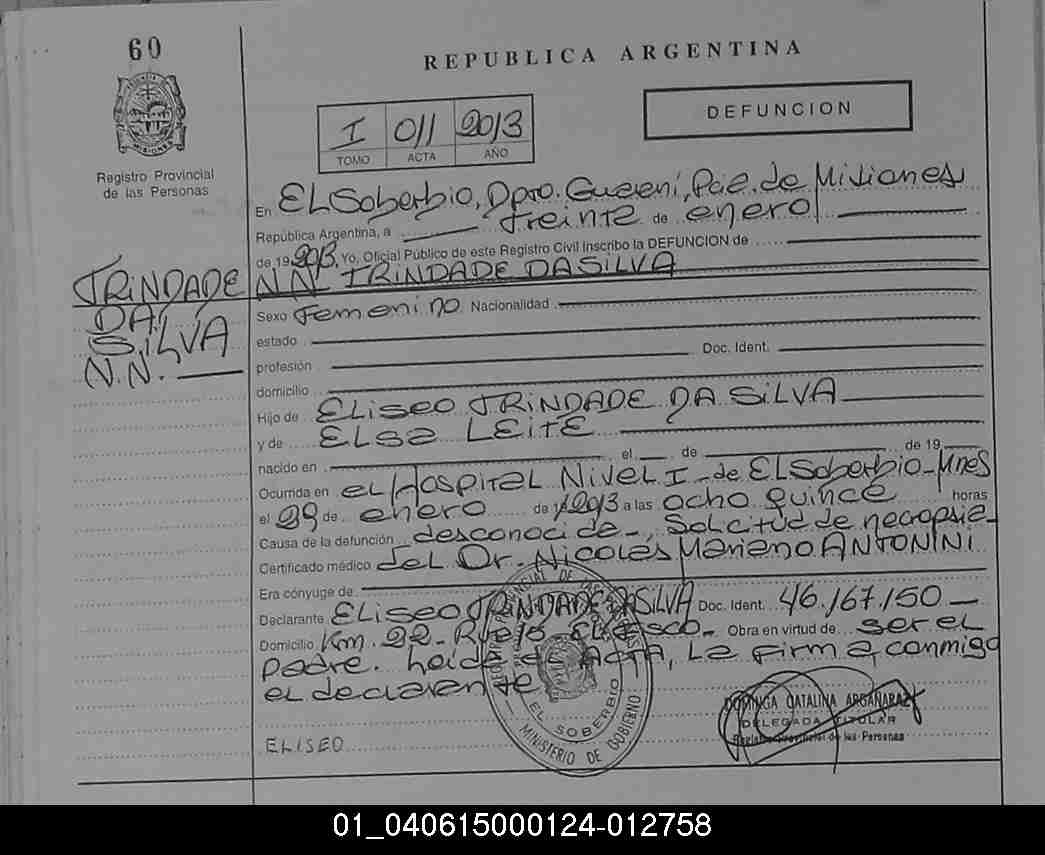 60
REPUBLICA ARGENTINA
I 011 2013
TOMO ACTA AÑO
DEFUNCION
Registro Provincial
de las Personas
En EL Soberbio, Dpto. Guaraní, Pcia. de Misiones
República Argentina, a treinta de enero
de 19 2013, Yo, Oficial Público de este Registro Civil Inscribo la DEFUNCION de
N.N. TRINDADE DA SILVA
TRINDADE
DA
SILVA
N.N.
Sexo Femenino Nacionalidad
estado
profesión Doc. Ident.
domicilio
Hijo de ELISEO TRINDADE DA SILVA
y de ELSA LEITE
nacido en el de de 19
Ocurrida en el HOSPITAL NIVEL I - de EL Soberbio - Mnes
el 29 de enero de 2013 a las ocho quince horas
Causa de la defunción desconocida -, Solicitud de necropsia -
Certificado médico del Dr. Nicolas Mariano ANTONINI
Era cónyuge de
Declarante ELISEO TRINDADE DA SILVA Doc. Ident. 46.167.150
Domicilio Km. 22 - Obra en virtud de ser el
padre. Leída el ACTA, La firma conmigo
el declarante
ELISEO
REGISTRO PROVINCIAL DE LAS PERSONAS
EL SOBERBIO
MINISTERIO DE GOBIERNO
DOMINGA CATALINA ARGAÑARAZ
DELEGADA TITULAR
Registro Provincial de las Personas
01_040615000124-012758